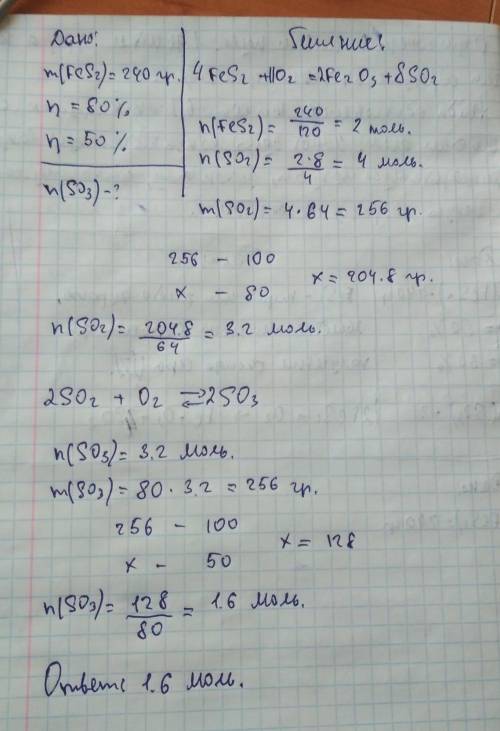 Дано:
m(FeS2) = 240 гр.
η = 80%
η = 50%
n(SO3) - ?
Решение:
4FeS2 + 11O2 = 2Fe2O3 + 8SO2
n(FeS2) = 240/120 = 2 моль.
n(SO2) = 2·8/4 = 4 моль.
m(SO2) = 4·64 = 256 гр.
256 - 100
x - 80
x = 204.8 гр.
n(SO2) = 204.8/64 = 3.2 моль.
2SO2 + O2 ⇄ 2SO3
n(SO3) = 3.2 моль.
m(SO3) = 80 · 3.2 = 256 гр.
256 - 100
x - 50
x = 128
n(SO3) = 128/80 = 1.6 моль.
Ответ: 1.6 моль.